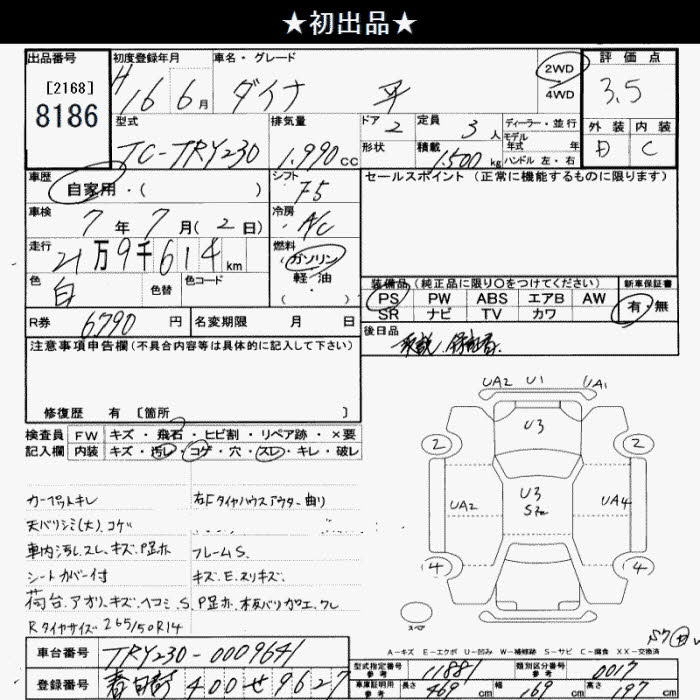 ★初出品★
出品番号
[2168]
8186
初度登録年月
H16 6月
車名・グレード
ダイナ 平
2WD
4WD
評価点
3.5
外装 内装
D C
型式
TC-TRY230
排気量
1.990cc
ドア 2
形状
定員 3人
積載 1.500kg
ディーラー・並行
モデル年式 年
ハンドル 左・右
車歴
自家用・( )
シフト
F5
セールスポイント (正常に機能するものに限ります)
車検
7年7月(2日)
冷房
A/C
走行
21万9千614km
燃料
ガソリン
軽・油
・( )
色
白
色替
色コード
装備品(純正品に限り○をつけてください)
新車保証書
PS PW ABS エアB AW
SR ナビ TV カワ
有・無
R券 6790円
名変期限 月 日
後日品
取説.保証書.
注意事項申告欄(不具合内容等は具体的に記入して下さい)
修復歴 有 [箇所 ]
検査員
記入欄
FW キズ・飛石・ヒビ割・リペア跡・×要
内装 キズ・汚レ・コゲ・穴・スレ・キレ・破レ
カーペットキレ
天バリシミ(大).コゲ
車内汚し.スレ.キズ.P足ホ
シートカバー付
荷台.アオリ.キズ.ヘコミ.S.P足ホ.木板バリガエ.ワレ
Rタイヤサイズ265/50R14
右Fタイヤハウスアウター曲リ
フレームS.
キズ.E.スリキズ.
UA2 U1 UA1
U3
2 2
UA2
U3
UA4
4 4
スペア
A-キズ E-エクボ U-凹み W-補修跡 S-サビ C-腐食 XX-交換済
車台番号 TRY230-0009641
登録番号 春日部 400 せ 9627
型式指定番号
参考
11881
類別区分番号
参考
0017
車庫証明用
参考
長さ 469cm 幅 169cm 高さ 197cm